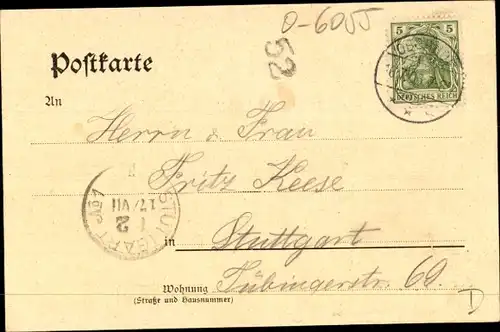 O-6055
52
Postkarte
5 5
DEUTSCHES REICH
An
Herrn & Frau
Fritz Keese
STUTTGART
17/VII
1-2
in Stuttgart
Wohnung Tübingerstr. 69.
(Straße und Hausnummer)
D